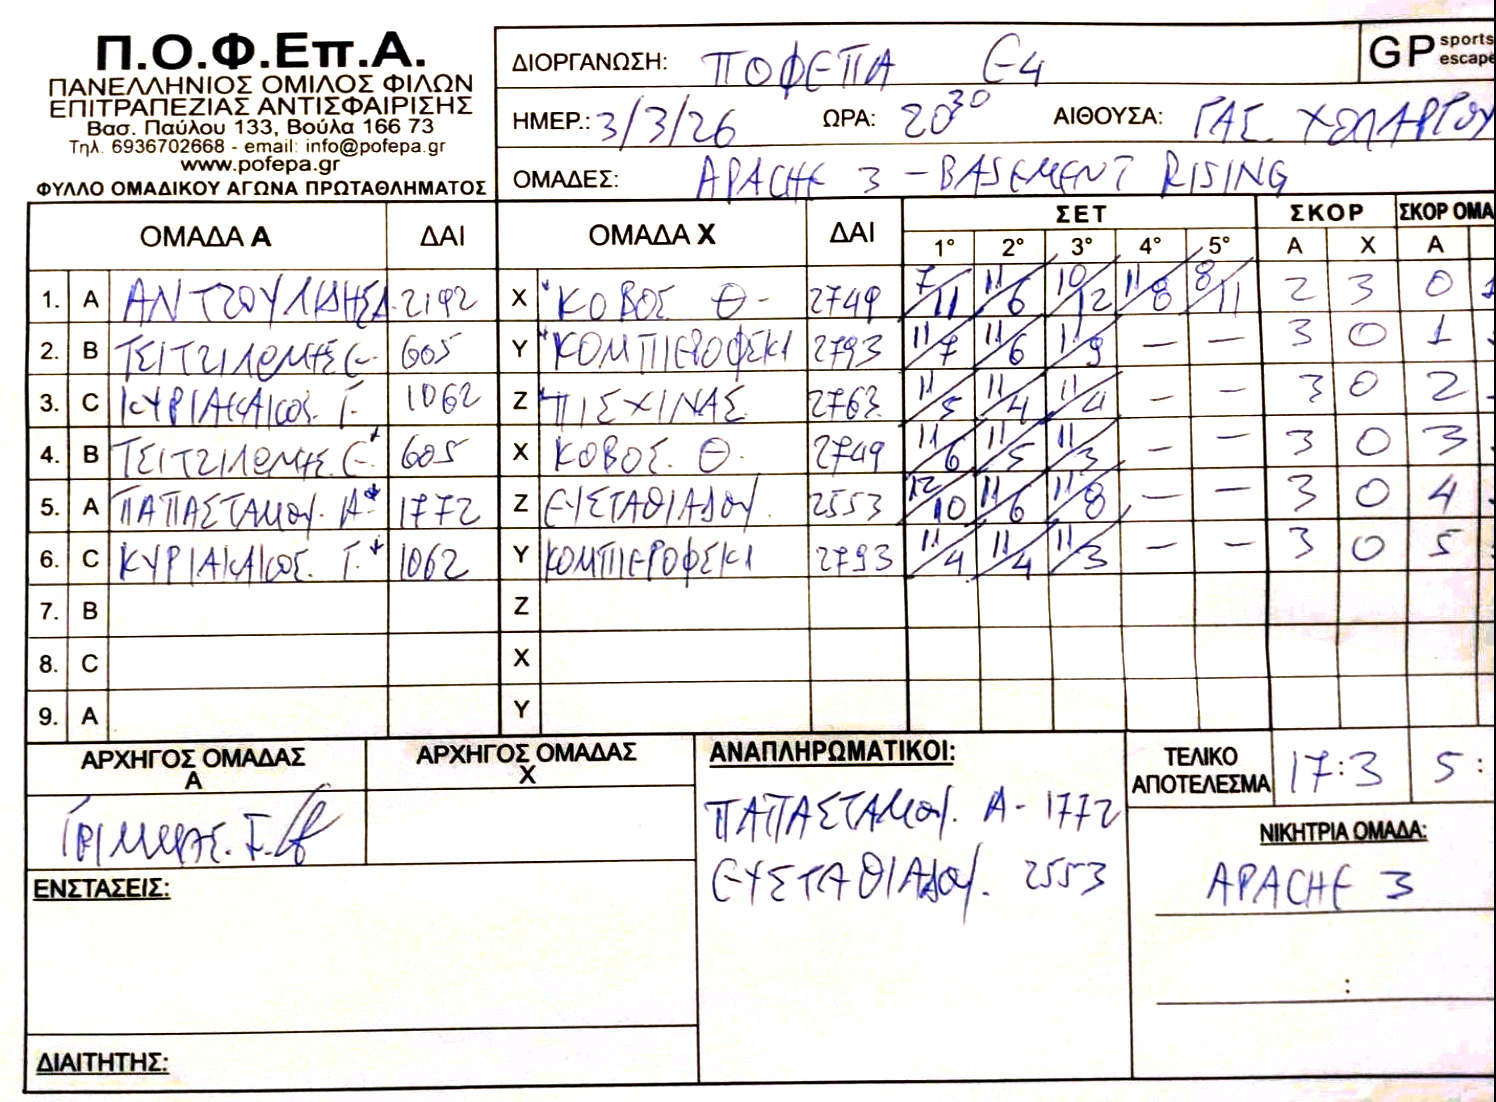 Π.Ο.Φ.Επ.Α.
ΠΑΝΕΛΛΗΝΙΟΣ ΟΜΙΛΟΣ ΦΙΛΩΝ
ΕΠΙΤΡΑΠΕΖΙΑΣ ΑΝΤΙΣΦΑΙΡΙΣΗΣ
Βασ. Παύλου 133, Βούλα 166 73
Τηλ. 6936702668 - email: info@pofepa.gr
www.pofepa.gr
ΦΥΛΛΟ ΟΜΑΔΙΚΟΥ ΑΓΩΝΑ ΠΡΩΤΑΘΛΗΜΑΤΟΣ
ΔΙΟΡΓΑΝΩΣΗ: ΠΟΦΕΠΑ Ε4
GP sports escape
ΗΜΕΡ.: 3/3/26 ΩΡΑ: 20 30 ΑΙΘΟΥΣΑ: ΓΑΣ. ΧΟΛΑΡΓΟΥ
ΟΜΑΔΕΣ: APACHE 3 - BASEMENT RISING
ΟΜΑΔΑ Α ΔΑΙ ΟΜΑΔΑ Χ ΔΑΙ ΣΕΤ ΣΚΟΡ ΣΚΟΡ ΟΜΑ
1° 2° 3° 4° 5° Α Χ Α
1. A ΑΝΤΖΟΥΛΙΔΗΣ Δ. 2192 X * ΚΟΒΟΣ Θ - 2749 7/11 11/6 10/12 11/8 8/11 2 3 0
2. B ΤΣΙΤΖΙΛΩΝΗΣ Ε. 605 Y * ΚΟΜΠΙΕΡΟΦΣΚΙ 2793 11/7 11/6 11/9 - - 3 0 1
3. C ΚΥΡΙΑΚΑΚΟΣ. Γ. 1062 Z * ΠΙΣΧΙΝΑΣ 2763 11/5 11/4 11/4 - - 3 0 2
4. B ΤΣΙΤΖΙΛΩΝΗΣ. Ε. * 605 X ΚΟΒΟΣ. Θ. 2749 11/6 11/5 11/3 - - 3 0 3
5. A ΠΑΠΑΣΤΑΜΟΥ. Α * 1772 Z ΕΥΣΤΑΘΙΑΔΟΥ. 2553 12/10 11/6 11/8 - - 3 0 4
6. C ΚΥΡΙΑΚΑΚΟΣ. Γ. * 1062 Y ΚΟΜΠΙΕΡΟΦΣΚΙ 2793 11/4 11/4 11/3 - - 3 0 5
7. B Z
8. C X
9. A Y
ΑΡΧΗΓΟΣ ΟΜΑΔΑΣ Α
ΑΡΧΗΓΟΣ ΟΜΑΔΑΣ Χ
ΑΝΑΠΛΗΡΩΜΑΤΙΚΟΙ:
ΠΑΠΑΣΤΑΜΟΥ. Α - 1772
ΕΥΣΤΑΘΙΑΔΟΥ. 2553
ΤΕΛΙΚΟ ΑΠΟΤΕΛΕΣΜΑ 17:3 5:
ΝΙΚΗΤΡΙΑ ΟΜΑΔΑ:
APACHE 3
:
ΕΝΣΤΑΣΕΙΣ:
ΔΙΑΙΤΗΤΗΣ: